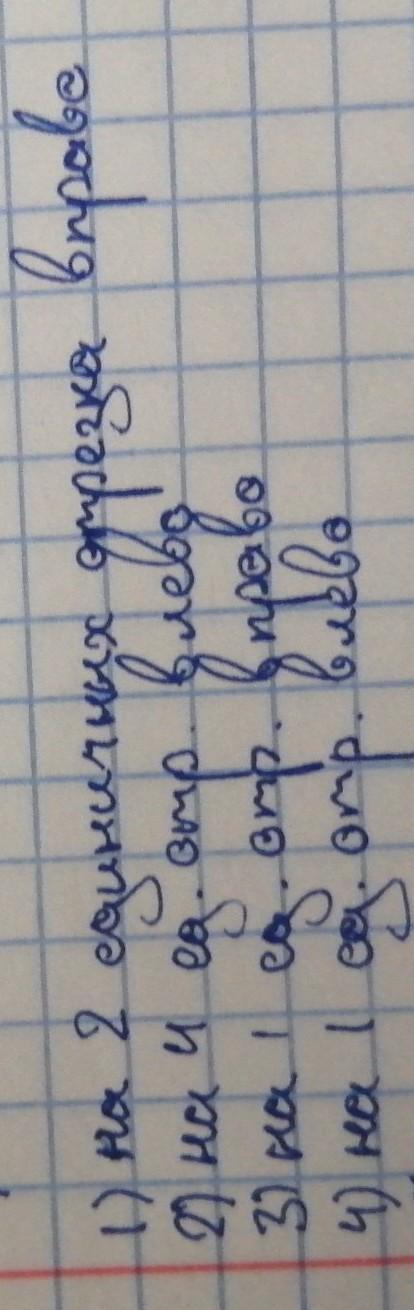 1) на 2 единичных отрезка вправо
2) на 4 ед. отр. влево
3) на 1 ед. отр. вправо
4) на 1 ед. отр. влево